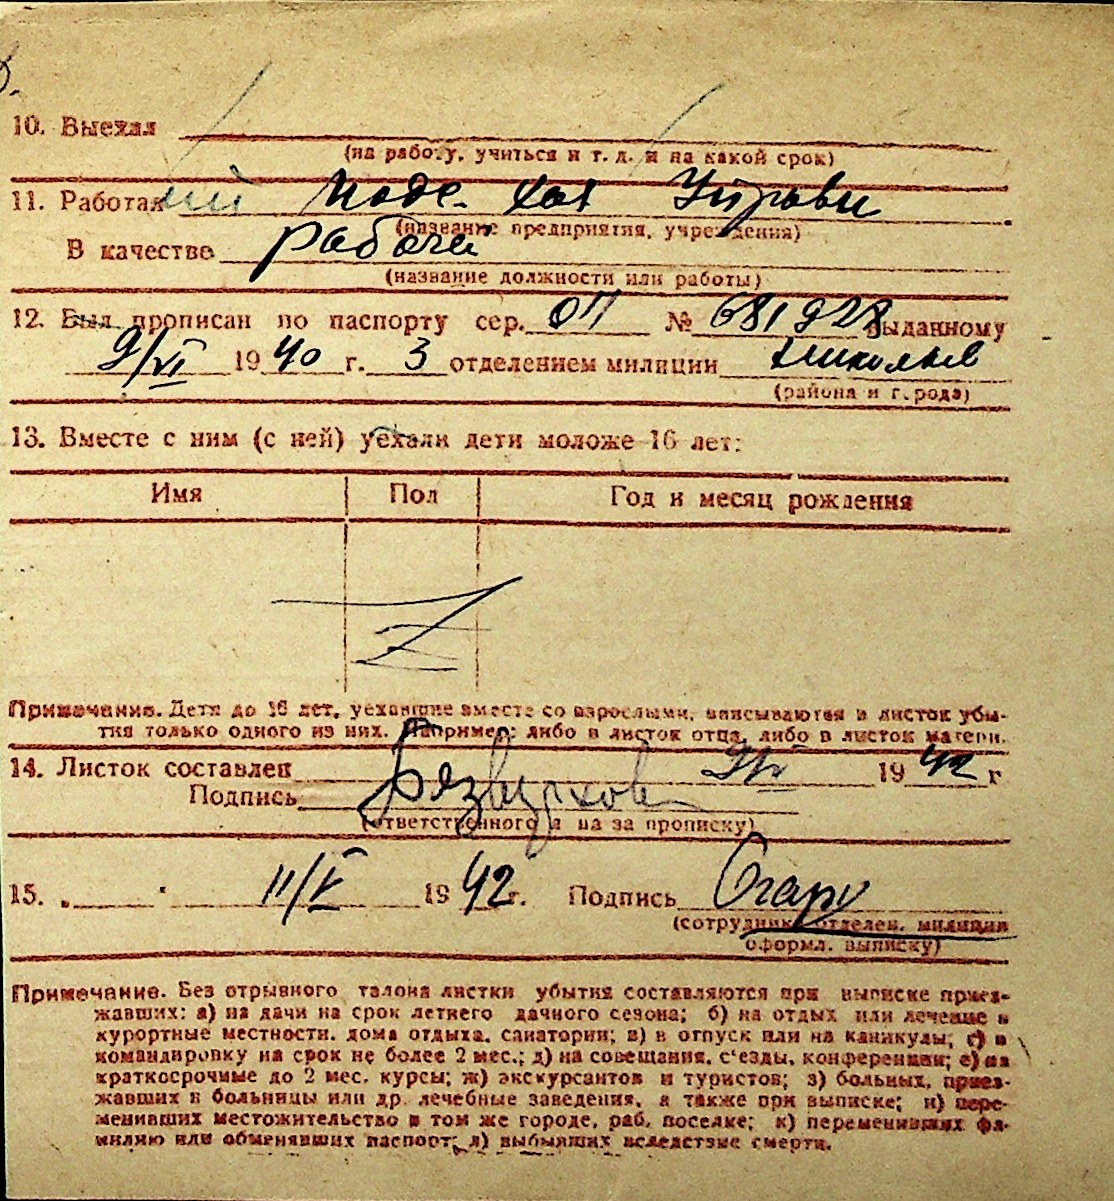 10. Выехал
(на работу, учиться и т. д. и на какой срок)
11. Работал
(название предприятия, учреждения)
В качестве рабочей
(название должности или работы)
12. Был прописан по паспорту сер. № 681928 выданному
9/VI 1940 г. 3 отделением милиции Николаев
(района и города)
13. Вместе с ним (с ней) уехали дети моложе 16 лет:
Имя Пол Год и месяц рождения
Примечание. Дети до 16 лет, уехавшие вместе со взрослыми, вписываются в листок убы-
тия только одного из них. Например: либо в листок отца, либо в листок матери.
14. Листок составлен 1942 г
Подпись
(ответственного за прописку)
15. „ “ 11/V 1942 г. Подпись
(сотрудник отделен. милиции
оформл. выписку)
Примечание. Без отрывного талона листки убытия составляются при выписке приез-
жавших: а) на дачи на срок летнего дачного сезона; б) на отдых или лечение в
курортные местности, дома отдыха, санатории; в) в отпуск или на каникулы; г) в
командировку на срок не более 2 мес.; д) на совещания, с'езды, конференции; е) на
краткосрочные до 2 мес. курсы; ж) экскурсантов и туристов; з) больных, приез-
жавших в больницы или др. лечебные заведения, а также при выписке; и) пере-
менивших местожительство в том же городе, раб. поселке; к) переменивших фа-
милию или обменявших паспорт; л) выбывших вследствие смерти.